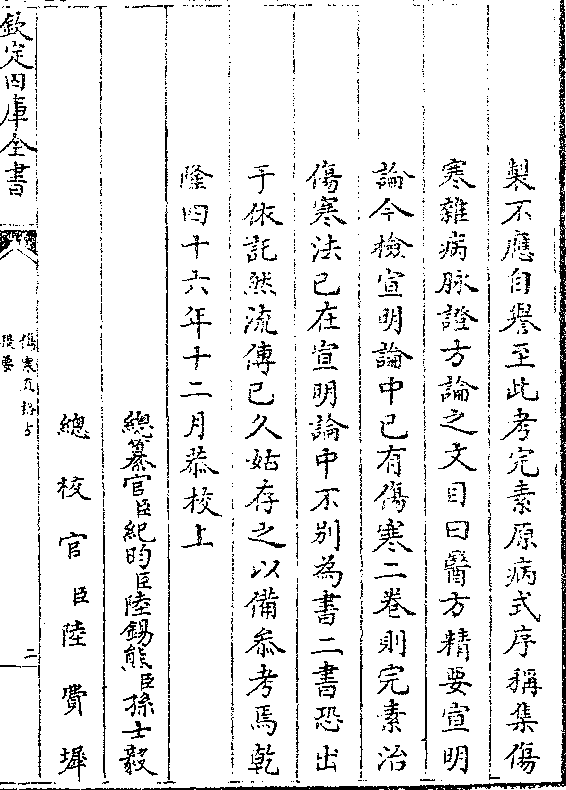 製不應自譽至此考完素原病式序稱集傷
寒雜病脉證方論之文目曰醫方精要宣明
論今檢宣明論中已有傷寒二卷則完素治
傷寒法已在宣明論中不别為書二書恐出
于依託然流傳已久姑存之以備叅考焉乾
隆四十六年十二月恭校上
總纂官臣紀昀臣陸錫熊臣孫士毅
總校官臣陸費墀
欽定四庫全書
傷寒直格方
提要
二